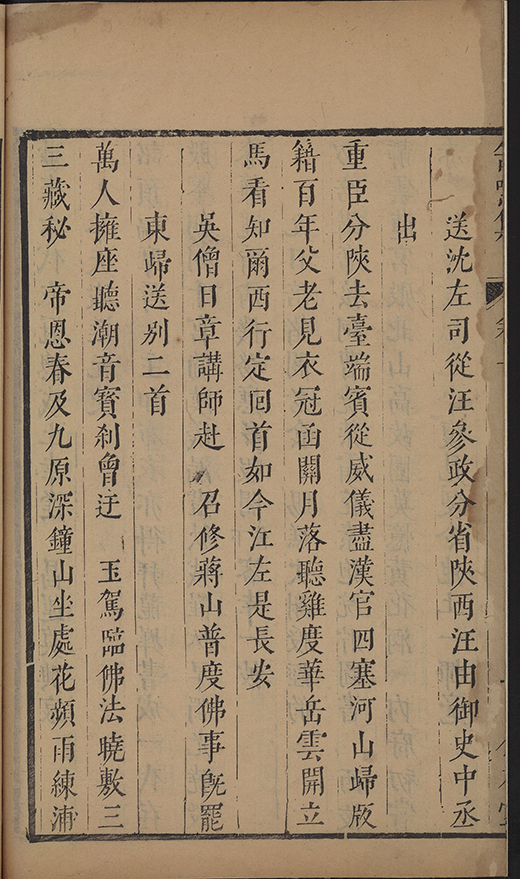 送沈左司從汪參政分省陝西汪由御史中丞
出
重臣分陝去臺端賓從威儀盡漢官四塞河山歸版
籍百年父老見衣冠函關月落聽雞度華岳雲開立
馬看知爾西行定囘首如今江左是長安
吳僧日章講師赴 召修蔣山普度佛事旣罷
東歸送別二首
萬人擁座聽潮音寳刹曾迂 玉駕臨佛法曉敷三
三藏秘 帝恩春及九原深鐘山坐處花頻雨練浦